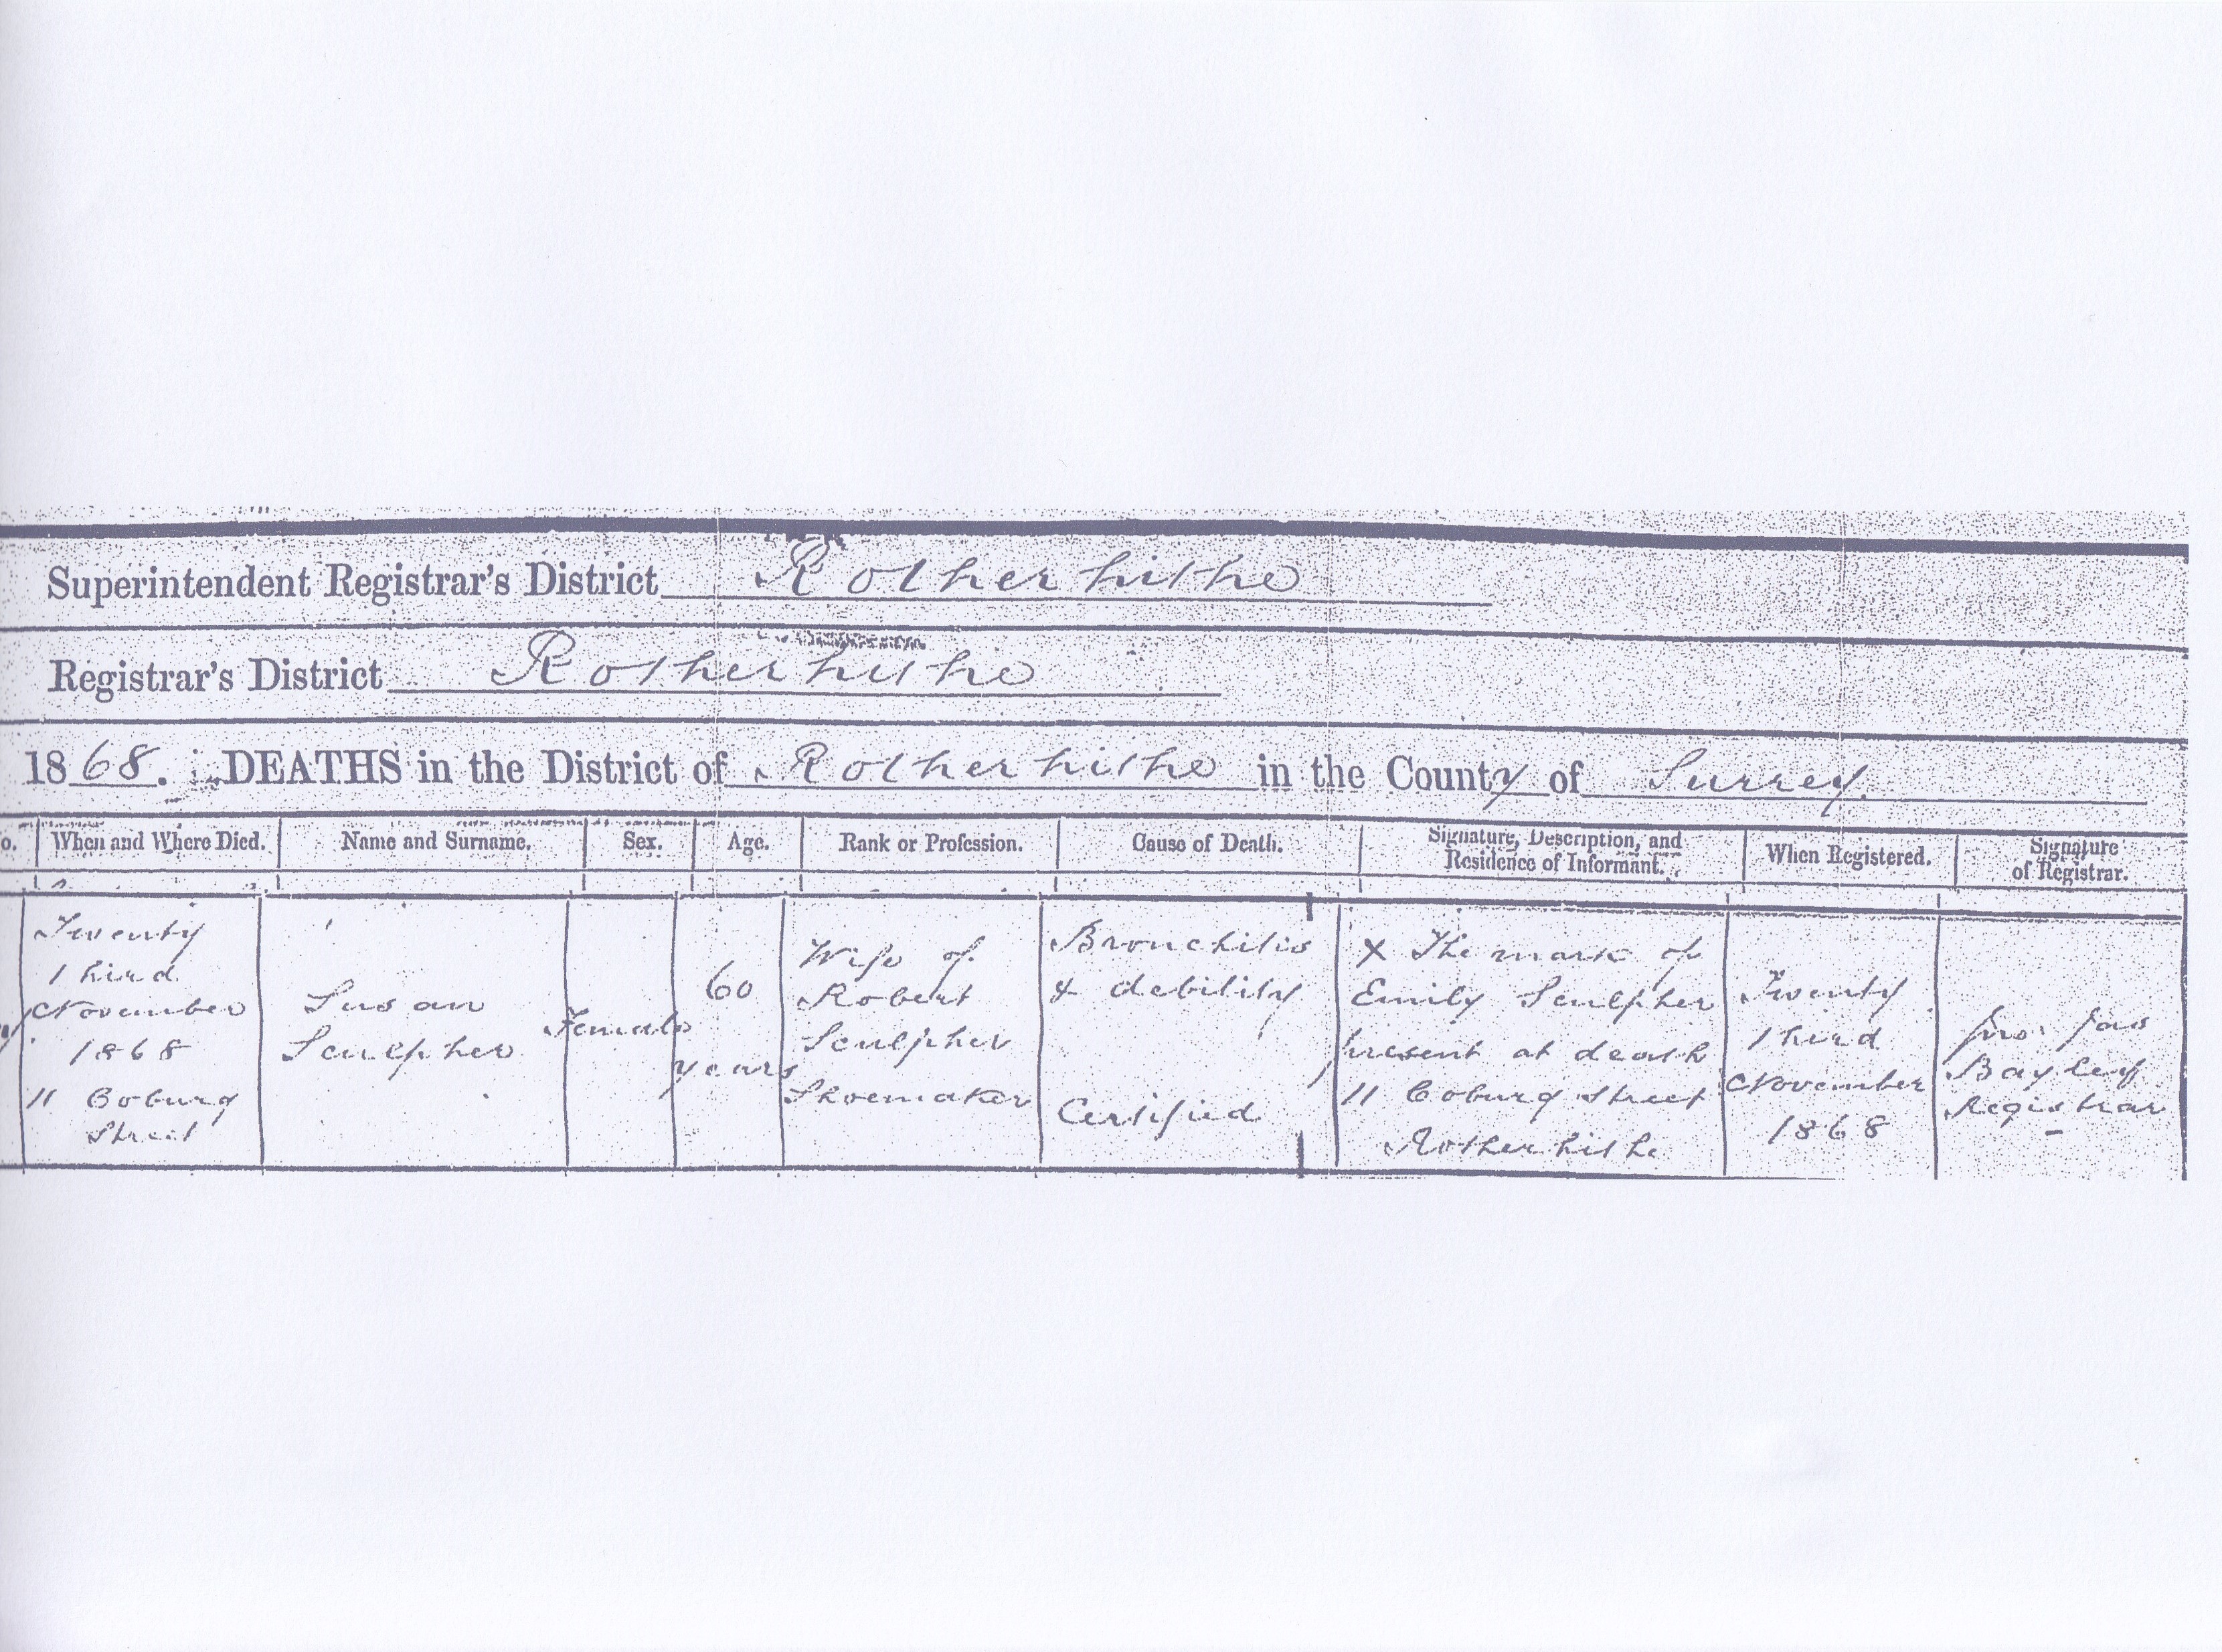 Superintendent Registrar's District Rotherhithe
Registrar's District Rotherhithe
1868. DEATHS in the District of Rotherhithe in the County of Surrey.
o. When and Where Died. Name and Surname. Sex. Age. Rank or Profession. Cause of Death. Signature, Description, and Residence of Informant. When Registered. Signature of Registrar.
Twenty
third
November
1868
11 Coburg
Street
Susan
Sculpher
Female
60
years
Wife of
Robert
Sculpher
Shoemaker
Bronchitis
& debility
Certified
X The mark of
Emily Sculpher
present at death
11 Coburg Street
Rotherhithe
Twenty
third
November
1868
Jas
Bayley
Registrar